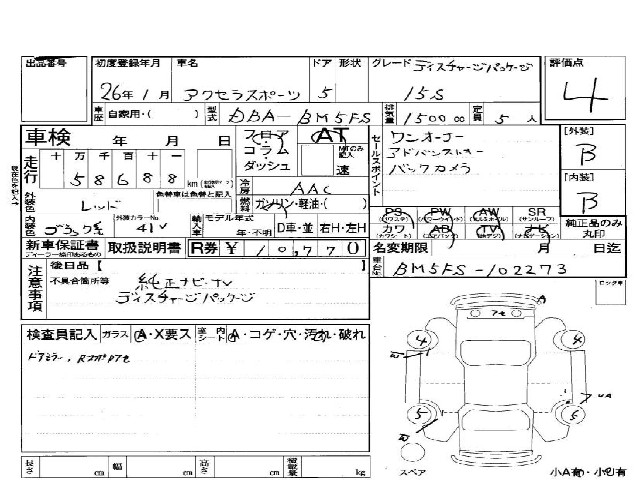 出品番号 初度登録年月 車名 ドア 形状 グレード ディスチャージパッケージ 評価点
26年1月 アクセラスポーツ 5 15S 4
車歴 自家用・( ) 型式 DBA-BM5FS 排気量 1500 cc 定員 5 人
車検 年 月 日 フロア AT セールスポイント ワンオーナー [外装]
走行 十万千百十一 コラム MTのみ記入 アドバンストキー B
58688 km ダッシュ 速 バックカメラ
外装色 レッド 色替車は色替と記入 冷房 AAC [内装]
燃料 ガソリン・軽油・( ) B
内装色 ブラック系 外装カラーNo 41V 輸入車 モデル年式 D車・並 右H・左H PS PW AW SR 純正品のみ
年・不明 カワ AB TV ナビ 丸印
新車保証書 取扱説明書 R券 ¥10,770 名変期限 月 日迄
注意事項 後日品【 】 車台No BM5FS-102273 ロックNo
不具合箇所等 純正ナビ・TV
ディスチャージパッケージ
検査員記入 ガラス A・X要ス 室内シート A・コゲ・穴・汚れ・破れ
ドアミラー, Rフォグアセ
A
アセ
4 4
5 5
スペア 小A有・小凹有
長さ cm 幅 cm 高さ cm 積載量 kg